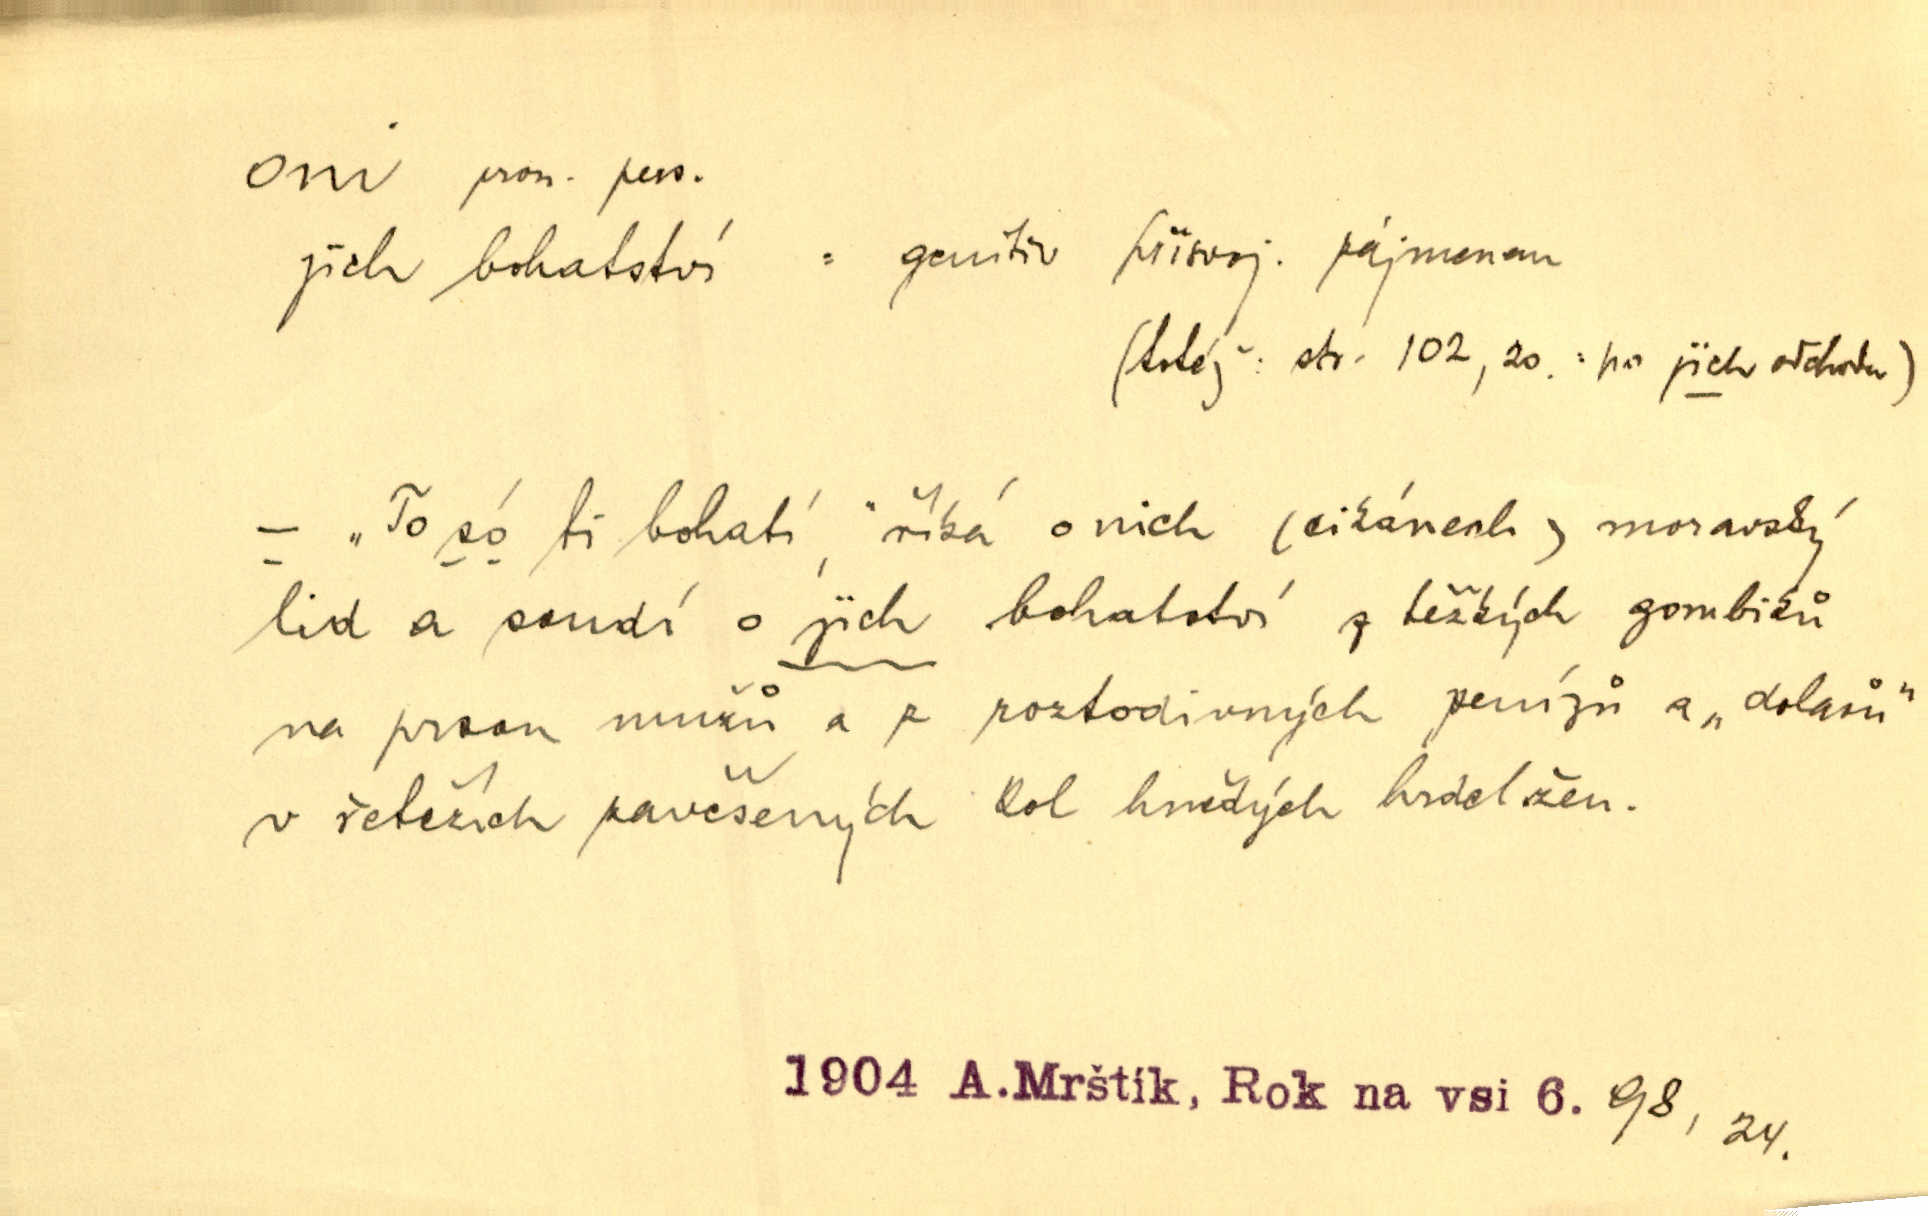 oni pron. pers.
jich bohatství = genitiv přisvoj. zájmenem
(totéž: str. 102, 20. : po jich odchodu)
– „To só ti bohatí," říká o nich (cikánech) moravský
lid a soudí o jich bohatství z těžkých gombíků
na prsou mužů a z roztodivných penízů a „dolarů"
v řetězích zavěšených kol hnědých hrdel žen.
1904 A.Mrštík, Rok na vsi 6. 98, 24.